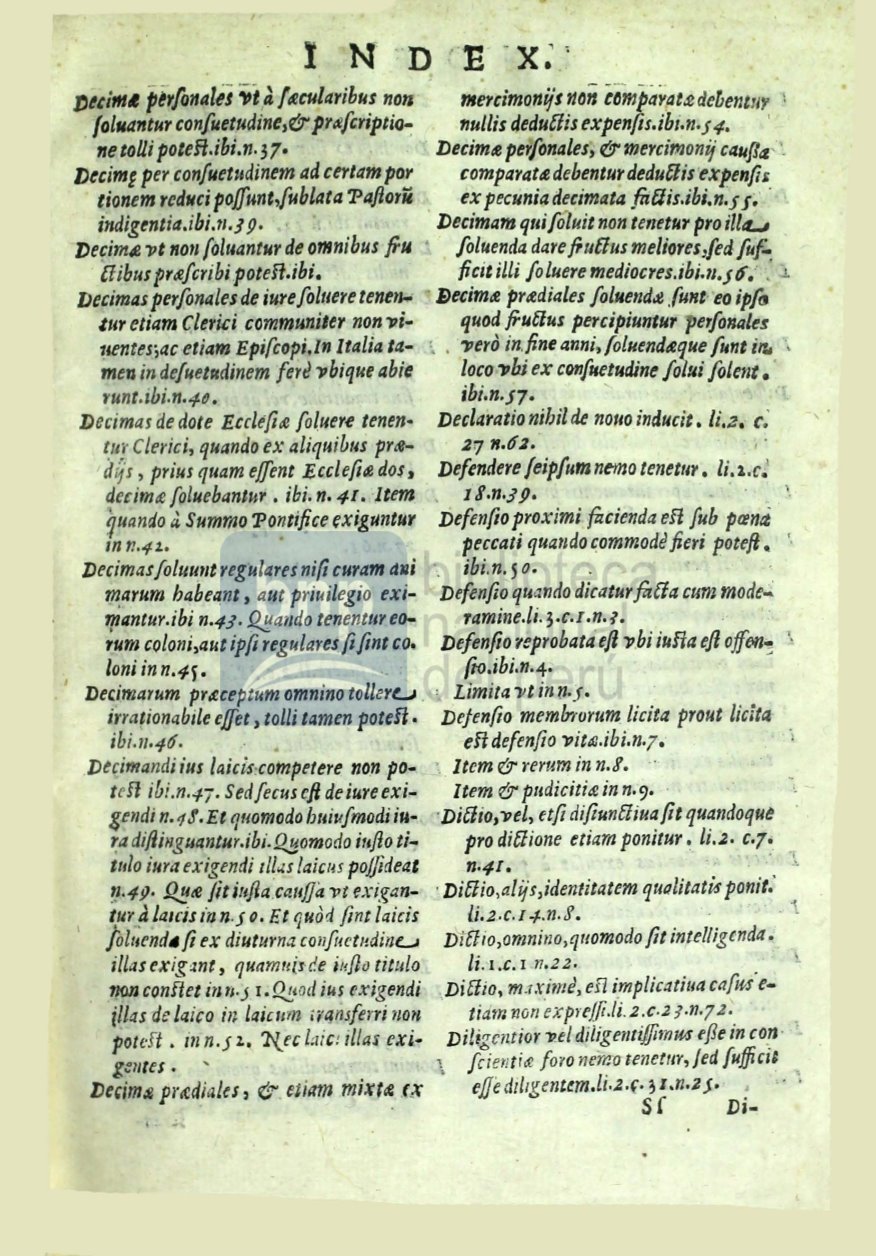 INDEX.
Decimæ perſonales vt à ſæcularibus non
ſoluantur conſuetudine,& præſcriptio-
ne tolli poteſt.ibi.n.37.
Decimę per conſuetudinem ad certam por
tionem reduci poſſunt,ſublata Paſtorũ
indigentia.ibi.n.39.
Decimæ vt non ſoluantur de omnibus fru
ctibus præſcribi poteſt.ibi.
Decimas perſonales de iure ſoluere tenen-
tur etiam Clerici communiter non vi-
uentes;ac etiam Epiſcopi,In Italia ta-
men in deſuetudinem ferè vbique abie
runt.ibi.n.40.
Decimas de dote Eccleſiæ ſoluere tenen-
tur Clerici, quando ex aliquibus præ-
dijs, prius quam eſſent Eccleſiæ dos,
decimæ ſoluebantur . ibi. n. 41. Item
quando à Summo Pontifice exiguntur
in n.42.
Decimas ſoluunt regulares niſi curam ani
marum habeant, aut priuilegio exi-
mantur.ibi n.43. Quando tenentur eo-
rum coloni,aut ipſi regulares ſi ſint co.
loni in n.45.
Decimarum præceptum omnino tollere
irrationabile eſſet, tolli tamen poteſt.
ibi.n.46.
Decimandi ius laicis competere non po-
teſt ibi.n.47. Sed ſecus eſt de iure exi-
gendi n.48. Et quomodo huiuſmodi iu-
ra diſtinguantur.ibi. Quomodo iuſto ti-
tulo iura exigendi illas laicus poſſideat
n.49. Quæ ſit iuſta cauſſa vt exigan-
tur à laicis in n.50. Et quòd ſint laicis
ſoluendæ ſi ex diuturna conſuetudine
illas exigant, quamuis de iuſto titulo
non conſtet in n.51. Quod ius exigendi
illas de laico in laicum transferri non
poteſt . in n.52. Nec laici illas exi-
gentes .
Decimæ prædiales, & etiam mixtæ ex
mercimonijs non comparatæ debentur
nullis deductis expenſis.ibi.n.54.
Decimæ perſonales, & mercimonij cauſſa
comparatæ debentur deductis expenſis
ex pecunia decimata factis.ibi.n.55.
Decimam qui ſoluit non tenetur pro illa
ſoluenda dare fructus meliores,ſed ſuf-
ficit illi ſoluere mediocres.ibi.n.56.
Decimæ prædiales ſoluendæ ſunt eo ipſo
quod fructus percipiuntur perſonales
verò in fine anni, ſoluendæque ſunt in
loco vbi ex conſuetudine ſolui ſolent.
ibi.n.57.
Declaratio nihil de nouo inducit. li.2. c.
27 n.62.
Defendere ſeipſum nemo tenetur. li.2.c.
18.n.39.
Defenſio proximi facienda eſt ſub pœna
peccati quando commodè fieri poteſt.
ibi.n.50.
Defenſio quando dicatur facta cum mode-
ramine.li.3.c.1.n.3.
Defenſio reprobata eſt vbi iuſta eſt offen-
ſio.ibi.n.4.
Limita vt in n.5.
Defenſio membrorum licita prout licita
eſt defenſio vitæ.ibi.n.7.
Item & rerum in n.8.
Item & pudicitiæ in n.9.
Dictio,vel, etſi diſiunctiua ſit quandoque
pro dictione etiam ponitur. li.2. c.7.
n.41.
Dictio,alijs,identitatem qualitatis ponit.
li.2.c.14.n.8.
Dictio,omnino,quomodo ſit intelligenda.
li.1.c.1 n.22.
Dictio, maximè, eſt implicatiua caſus e-
tiam non expreſſi.li.2.c.23.n.72.
Diligentior vel diligentiſſimus eſſe in con
ſcientiæ foro nemo tenetur, ſed ſufficit
eſſe diligentem.li.2.c.31.n.25.
Sſ Di-
biblioteca
na
del
eru